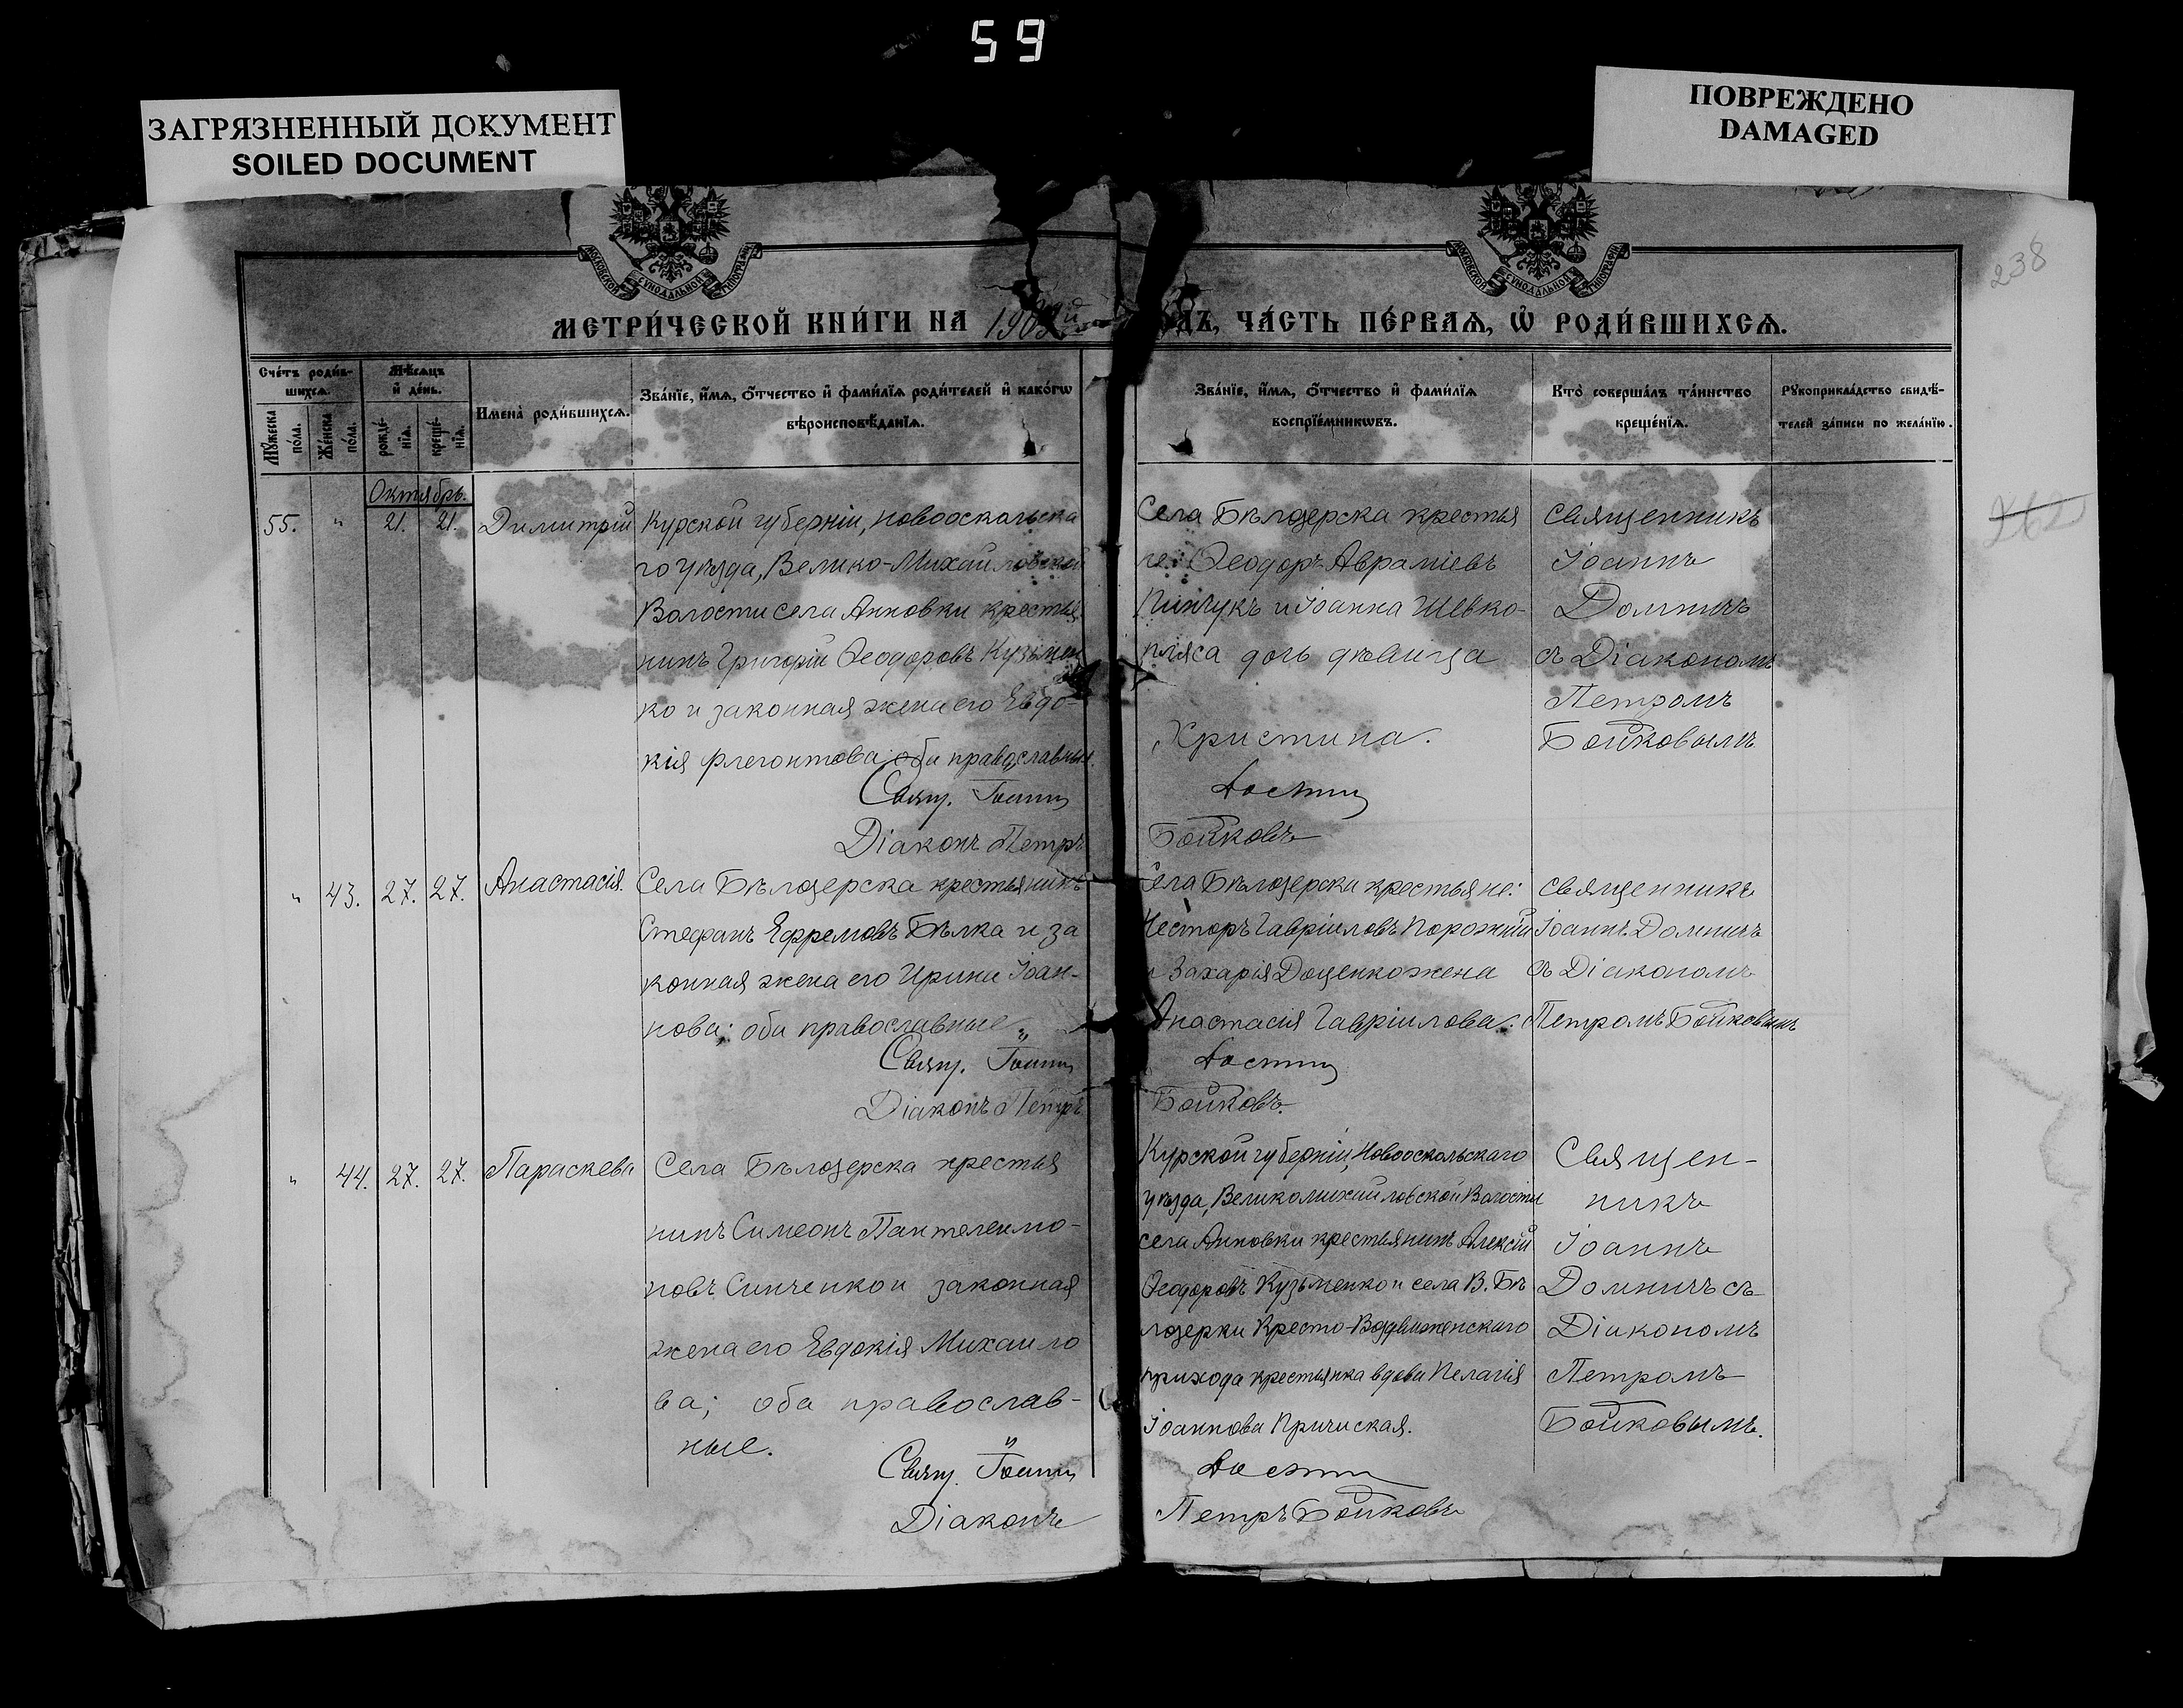 59
ЗАГРЯЗНЕННЫЙ ДОКУМЕНТ
SOILED DOCUMENT
ПОВРЕЖДЕНО
DAMAGED
МОСКОВСКОЙ СУНОДАЛЬНОЙ ТИПОГРАФІИ
МОСКОВСКОЙ СУНОДАЛЬНОЙ ТИПОГРАФІИ
238
МЕТРИ́ЧЕСКОЙ КНИ́ГИ НА 190 ДЪ, ЧА́СТЬ ПЕ́РВАѦ, Ѡ РОДИ́ВШИХСѦ.
Сче́тъ роди́в-
шихсѧ.
Мѣ́сѧцъ
и҆ де́нь.
Мꙋ́жеска
по́ла.
Же́нска
по́ла.
рожде́-
нїѧ.
креще́-
нїѧ.
Имена̀ роди́вшихсѧ.
Зва́нїе, и҆́мѧ, ѻ҆́тчество и҆ фами́лїѧ роди́телей и҆ како́гѡ
вѣроисповѣ́данїѧ.
Зва́нїе, и҆́мѧ, ѻ҆́тчество и҆ фами́лїѧ
воспрїе́мникѡвъ.
Кто̀ соверша́лъ та́инство
креще́нїѧ.
Рꙋкоприкла́дство свидѣ́-
телей за́писи по жела́нїю.
Октябрь.
55. " 21. 21. Димитрій
Курской губерніи, Новооскольска
го уѣзда, Велико-Михайловской
Волости села Анновки крестья
нинъ Григорій Ѳеодоровъ Кузьмен
ко и законная жена его Евдо-
кія Флегонтова оба православные.
Свящ. Іоаннъ
Діаконъ Петръ
Села Бѣлозерска крестья
не: Ѳеодоръ Авраміевъ
Пинчукъ и Іоанна Шевко-
пляса дочь дѣвица
Христина.
Бойковъ
Священникъ
Іоаннъ
Домничъ
съ Діакономъ
Петромъ
Бойковымъ
" 43. 27. 27. Анастасія.
Села Бѣлозерска крестьянинъ
Стефанъ Ефремовъ Бѣлка и за
конная жена его Ирина Іоан-
нова; оба православные
Свящ. Іоаннъ
Діаконъ Петръ
Села Бѣлозерска крестьяне:
Несторъ Гавріиловъ Порожній
и Захарія Доценко жена
Анастасія Гавріилова.
Бойковъ.
священникъ
Іоаннъ Домничъ
съ Діакономъ
Петромъ Бойковымъ
" 44. 27. 27. Параскева
Села Бѣлозерска крестья
нинъ Симеонъ Пантелеимо-
новъ Синченко и законная
жена его Евдокія Михаило
ва; оба православ-
ные.
Свящ. Іоаннъ
Діаконъ
Курской губерніи, Новооскольскаго
уѣзда, Великомихайловской Волости
села Анновки крестьянинъ Алексій
Ѳеодоровъ Кузьменко и села В. Бѣ
лозерки Кресто-Воздвиженскаго
прихода крестьянка вдова Пелагія
Іоаннова
Петръ Бойковъ
Священ-
никъ
Іоаннъ
Домничъ съ
Діакономъ
Петромъ
Бойковымъ.